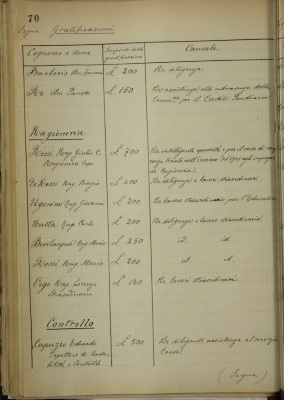 70
Segue Gratificazioni
Cognome e Nome
Importo della gratificazione
Causale
Barberis
£ 200
Per diligenza
Re
£ 150
Per assistenza alle adunanze della
Comm.ne per il Credito Fondiario
Ragioneria
Rossi Rag. Giulio C.
£ 700
Per intelligente operosità e per il modo di
Ragioniere Capo
di Ragioneria
De Rossi Rag. Biagio
£ 400
Per diligenza e lavori straordinari
Ugonino Rag. Giovanni
£ 200
Per lavori straordinari per
Natta Rag. Carlo
£ 200
Per diligenza e lavori straordinari
Bevilacqua Rag. Mario
£ 250
id. id.
Rossi Rag. Mario
£ 200
id. id.
Vigo Rag. Lorenzo
£ 120
Per lavori straordinari
Straordinario
Controllo
Capuzzo Edoardo
£ 500
Per diligente assistenza al servizio
Ispettore di
Cassa
e Controllo
(Segue)